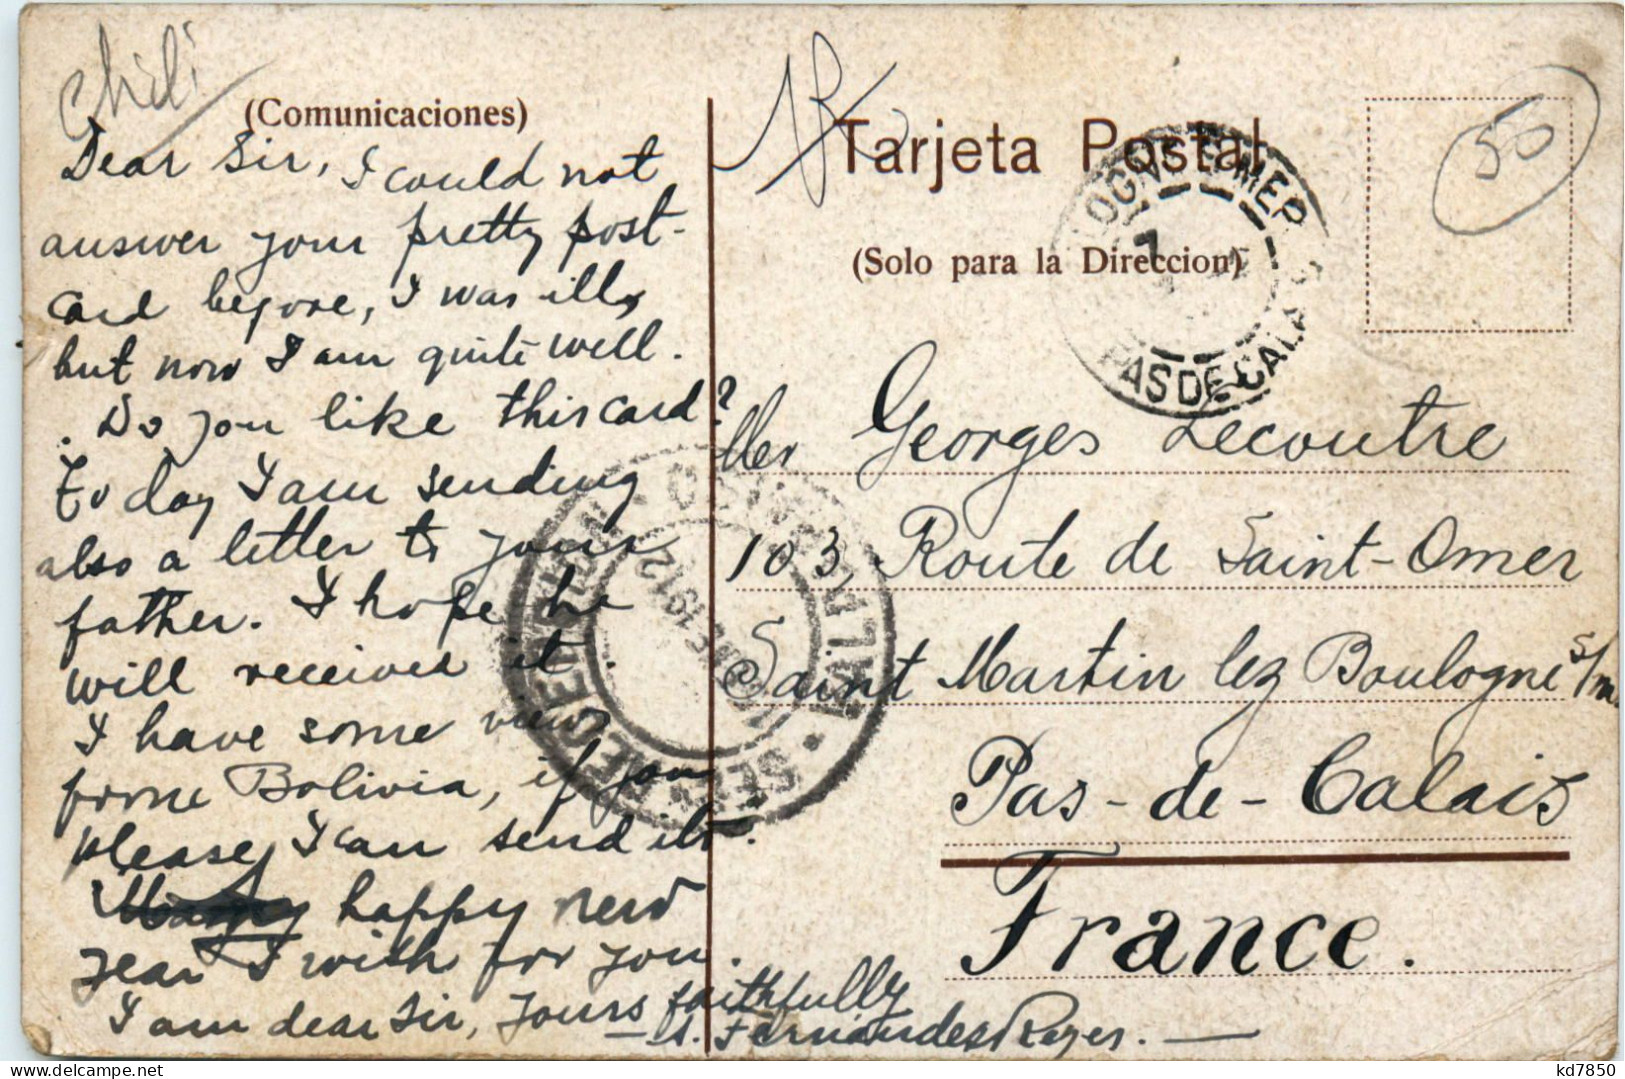 Chili
(Comunicaciones)
Dear Sir, I could not
answer your pretty post-
card before, I was ill,
but now I am quite well.
. Do you like this card?
To day I am sending
also a letter to your
father. I hope he
will received it.
I have some views
from Bolivia, if you
please, I can send it.
happy new
year I wish for you.
I am dear Sir, yours faithfully
A. Fernandes Reyes. —
Tarjeta Postal
(Solo para la Direccion)
50
PAS DE CALAIS
7
1912
Mer Georges Lecoutre
103, Route de Saint-Omer
Saint Martin lez Boulogne s/m
Pas-de-Calais
France.
kd7850